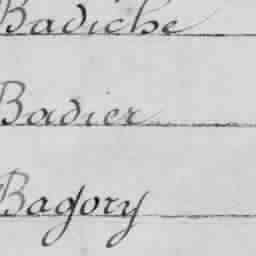 Badiche
Badier
Bagory